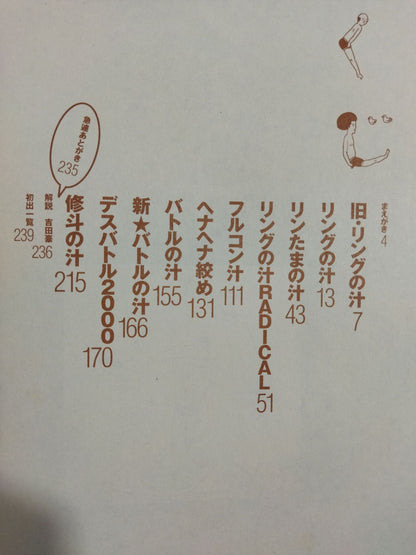 まえがき 4
旧・リングの汁 7
リングの汁 13
リンたまの汁 43
リングの汁RADICAL 51
フルコン汁 111
ヘナヘナ絞め 131
バトルの汁 155
新★バトルの汁 166
デスバトル2000 170
修斗の汁 215
急遽あとがき 235
解説 吉田豪 236
初出一覧 239